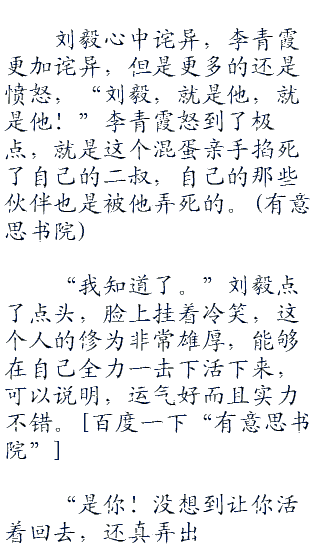 刘毅心中诧异，李青霞
更加诧异，但是更多的还是
愤怒，“刘毅，就是他，就
是他！”李青霞怒到了极
点，就是这个混蛋亲手掐死
了自己的二叔，自己的那些
伙伴也是被他弄死的。(有意
思书院)
“我知道了。”刘毅点
了点头，脸上挂着冷笑，这
个人的修为非常雄厚，能够
在自己全力一击下活下来，
可以说明，运气好而且实力
不错。[百度一下“有意思书
院”]
“是你！没想到让你活
着回去，还真弄出